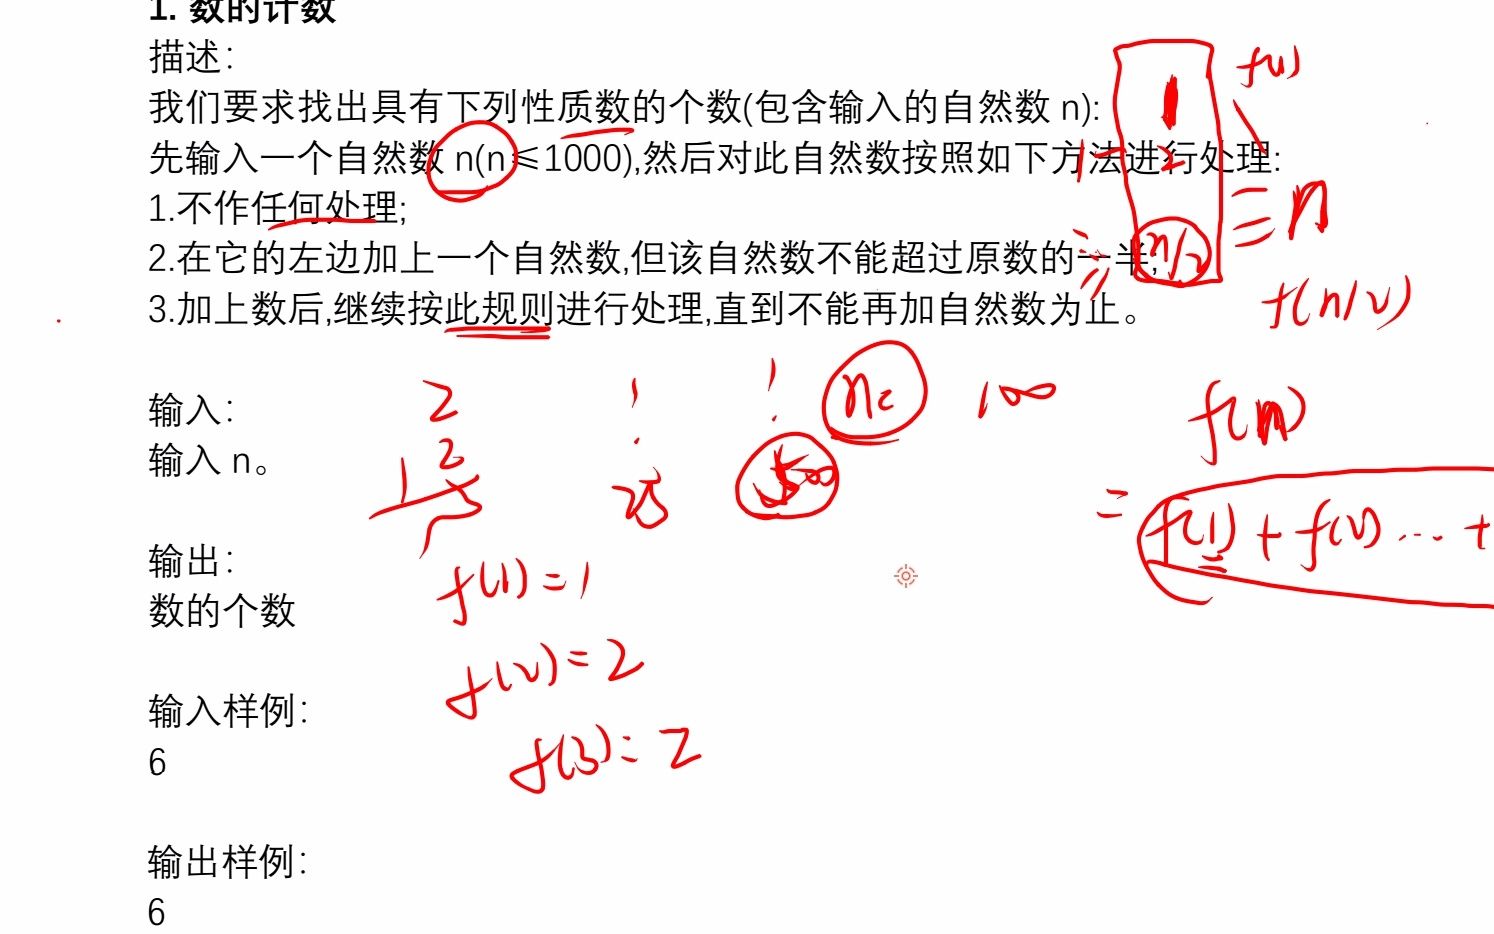 1. 数的计数
描述：
我们要求找出具有下列性质数的个数(包含输入的自然数 n):
先输入一个自然数 n(n≤1000),然后对此自然数按照如下方法进行处理:
1.不作任何处理;
2.在它的左边加上一个自然数,但该自然数不能超过原数的一半;
3.加上数后,继续按此规则进行处理,直到不能再加自然数为止。
1
2
n/2
f(1)
= n
f(n/2)
输入：
输入 n。
2
1 2
25
500
n=
100
f(n)
= f(1) + f(2) ... +
输出：
数的个数
f(1) = 1
f(2) = 2
f(3) = 2
输入样例：
6
输出样例：
6